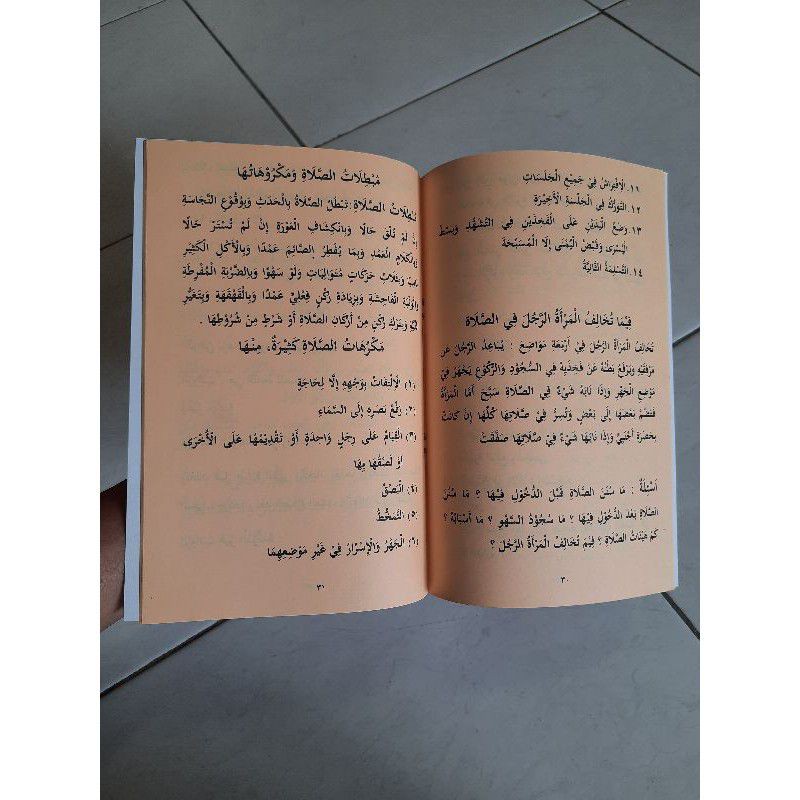 ١١. الْاِفْتِرَاشُ فِيْ جَمِيْعِ الْجَلَسَاتِ
١٢. التَّوَرُّكُ فِي الْجَلْسَةِ الْأَخِيْرَةِ
١٣. وَضْعُ الْيَدَيْنِ عَلَى الْفَخِذَيْنِ فِي التَّشَهُّدِ وَبَسْطُ
الْيُسْرَى وَقَبْضُ الْيُمْنَى إِلَّا الْمُسَبِّحَةَ
١٤. التَّسْلِيْمَةُ الثَّانِيَةُ
فِيْمَا تُخَالِفُ الْمَرْأَةُ الرَّجُلَ فِي الصَّلَاةِ
تُخَالِفُ الْمَرْأَةُ الرَّجُلَ فِيْ أَرْبَعَةِ مَوَاضِعَ : يُبَاعِدُ الرَّجُلُ عَنْ
مِرْفَقَيْهِ وَيَرْفَعُ بَطْنَهُ عَنْ فَخِذَيْهِ فِي السُّجُوْدِ وَالرُّكُوْعِ يَجْهَرُ فِيْ
مَوْضِعِ الْجَهْرِ وَإِذَا نَابَهُ شَيْءٌ فِي الصَّلَاةِ سَبَّحَ أَمَّا الْمَرْأَةُ
فَتَضُمُّ بَعْضَهَا إِلَى بَعْضٍ وَتُسِرُّ فِيْ صَلَاتِهَا كُلِّهَا إِنْ كَانَتْ
بِحَضْرَةِ أَجْنَبِيٍّ وَإِذَا نَابَهَا شَيْءٌ فِيْ صَلَاتِهَا صَفَّقَتْ
أَسْئِلَةٌ : مَا سُنَنُ الصَّلَاةِ قَبْلَ الدُّخُوْلِ فِيْهَا ؟ مَا سُنَنُ
الصَّلَاةِ بَعْدَ الدُّخُوْلِ فِيْهَا ؟ مَا سُجُوْدُ السَّهْوِ ؟ مَا أَسْبَابُهُ ؟
كَمْ هَيْئَاتُ الصَّلَاةِ ؟ فِيْمَ تُخَالِفُ الْمَرْأَةُ الرَّجُلَ ؟
٣٠
مُبْطِلَاتُ الصَّلَاةِ وَمَكْرُوْهَاتُهَا
مُبْطِلَاتُ الصَّلَاةِ : تَبْطُلُ الصَّلَاةُ بِالْحَدَثِ وَبِوُقُوْعِ النَّجَاسَةِ
إِنْ لَمْ تُلْقَ حَالًا وَبِانْكِشَافِ الْعَوْرَةِ إِنْ لَمْ تُسْتَرْ حَالًا
وَبِالْكَلَامِ الْعَمْدِ وَبِمَا يُفْطِرُ الصَّائِمَ عَمْدًا وَبِالْأَكْلِ الْكَثِيْرِ
وَبِثَلَاثِ حَرَكَاتٍ مُتَوَالِيَاتٍ وَلَوْ سَهْوًا وَبِالضَّرْبَةِ الْمُفْرِطَةِ
وَالْوَثْبَةِ الْفَاحِشَةِ وَبِزِيَادَةِ رُكْنٍ فِعْلِيٍّ عَمْدًا وَبِالْقَهْقَهَةِ وَبِتَغَيُّرِ
وَبِتَرْكِ رُكْنٍ مِنْ أَرْكَانِ الصَّلَاةِ أَوْ شَرْطٍ مِنْ شُرُوْطِهَا .
مَكْرُهَاتُ الصَّلَاةِ كَثِيْرَةٌ، مِنْهَا
(١) الْاِلْتِفَاتُ بِوَجْهِهِ إِلَّا لِحَاجَةٍ
(٢) رَفْعُ بَصَرِهِ إِلَى السَّمَاءِ
(٣) الْقِيَامُ عَلَى رِجْلٍ وَاحِدَةٍ أَوْ تَقْدِيْمُهَا عَلَى الْأُخْرَى
أَوْ لَصْقُهَا بِهَا
(٤) الْبَصْقُ
(٥) التَّمَخُّطُ
(٦) الْجَهْرُ وَالْإِسْرَارُ فِيْ غَيْرِ مَوْضِعِهِمَا
٣١